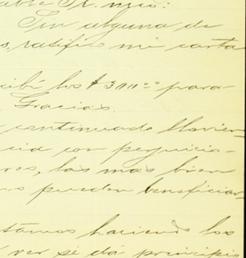 able Sr. mio:
Sin alguna de
s, ratifico mi carta
cibí los $300.00 para
Gracias.
continuado llovien
cia con perjuicio
res, las mas bien
nos pueden beneficiar
stamos haciendo los
ver se dá principio